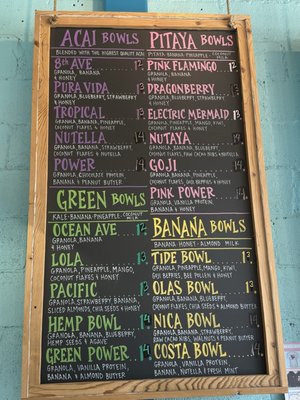 ACAI BOWLS
BLENDED WITH THE HIGHEST QUALITY ACAI
8th AVE 12
GRANOLA, BANANA
& HONEY
PURA VIDA 13
GRANOLA, BLUEBERRY, STRAWBERRY
& HONEY
TROPICAL 13
GRANOLA, BANANA, PINEAPPLE,
COCONUT FLAKES & HONEY
NUTELLA 14
GRANOLA, BANANA, STRAWBERRY,
COCONUT FLAKES & NUTELLA
POWER 14
GRANOLA, CHOCOLATE PROTEIN,
BANANA & PEANUT BUTTER
GREEN BOWLS
KALE-BANANA-PINEAPPLE-COCONUT MILK
OCEAN AVE 12
GRANOLA, BANANA
& HONEY
LOLA 13
GRANOLA, PINEAPPLE, MANGO,
COCONUT FLAKES & HONEY
PACIFIC 13
GRANOLA, STRAWBERRY, BANANA,
SLICED ALMONDS, CHIA SEEDS & HONEY
HEMP BOWL 14
GRANOLA, BANANA, BLUEBERRY,
HEMP SEEDS & AGAVE
GREEN POWER 14
GRANOLA, VANILLA PROTEIN,
BANANA & ALMOND BUTTER
PITAYA BOWLS
PITAYA, BANANA, PINEAPPLE, COCONUT MILK
PINK FLAMINGO 12
GRANOLA, BANANA
& HONEY
DRAGONBERRY 13
GRANOLA, BLUEBERRY, STRAWBERRY
& HONEY
ELECTRIC MERMAID 13
GRANOLA, PINEAPPLE, MANGO, KIWI,
COCONUT FLAKES & HONEY
NUTAYA 14
GRANOLA, BANANA, STRAWBERRY,
COCONUT FLAKES, RAW CACAO NIBS & NUTELLA
GOJI 14
GRANOLA, BANANA, PINEAPPLE,
COCONUT FLAKES, GOJI BERRIES & HONEY
PINK POWER 14
GRANOLA, VANILLA PROTEIN,
BANANA & HONEY
BANANA BOWLS
BANANA-HONEY-ALMOND MILK
TIDE BOWL 13
GRANOLA, PINEAPPLE, MANGO, KIWI,
GOJI BERRIES, BEE POLLEN & HONEY
OLAS BOWL 13
GRANOLA, BANANA, BLUEBERRY,
COCONUT FLAKES, CHIA SEEDS & ALMOND BUTTER
NICA BOWL 14
GRANOLA, BANANA, STRAWBERRY,
RAW CACAO NIBS, WALNUTS & PEANUT BUTTER
COSTA BOWL 14
GRANOLA, VANILLA PROTEIN,
BANANA, NUTELLA & FRESH MINT